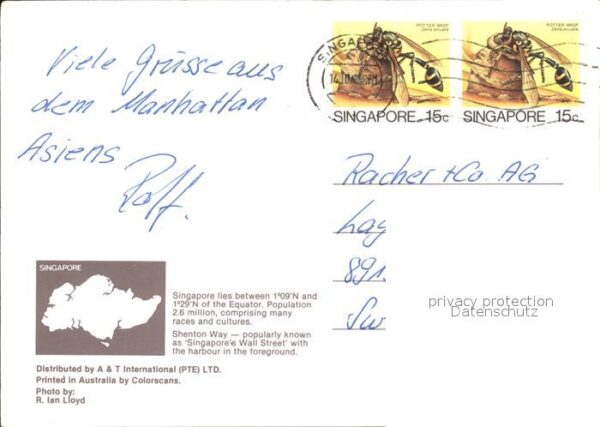 Viele Grüsse aus
dem Manhattan
Asiens
Rolf.
POTTER WASP
Delta arcuata
SINGAPORE 15c
POTTER WASP
Delta arcuata
SINGAPORE 15c
SINGAPORE
Racher + Co. AG
Lag
891
Sw
privacy protection
Datenschutz
SINGAPORE
Singapore lies between 1º09'N and
1º29'N of the Equator. Population
2.6 million, comprising many
races and cultures.
Shenton Way — popularly known
as 'Singapore's Wall Street' with
the harbour in the foreground.
Distributed by A & T International (PTE) LTD.
Printed in Australia by Colorscans.
Photo by:
R. Ian Lloyd